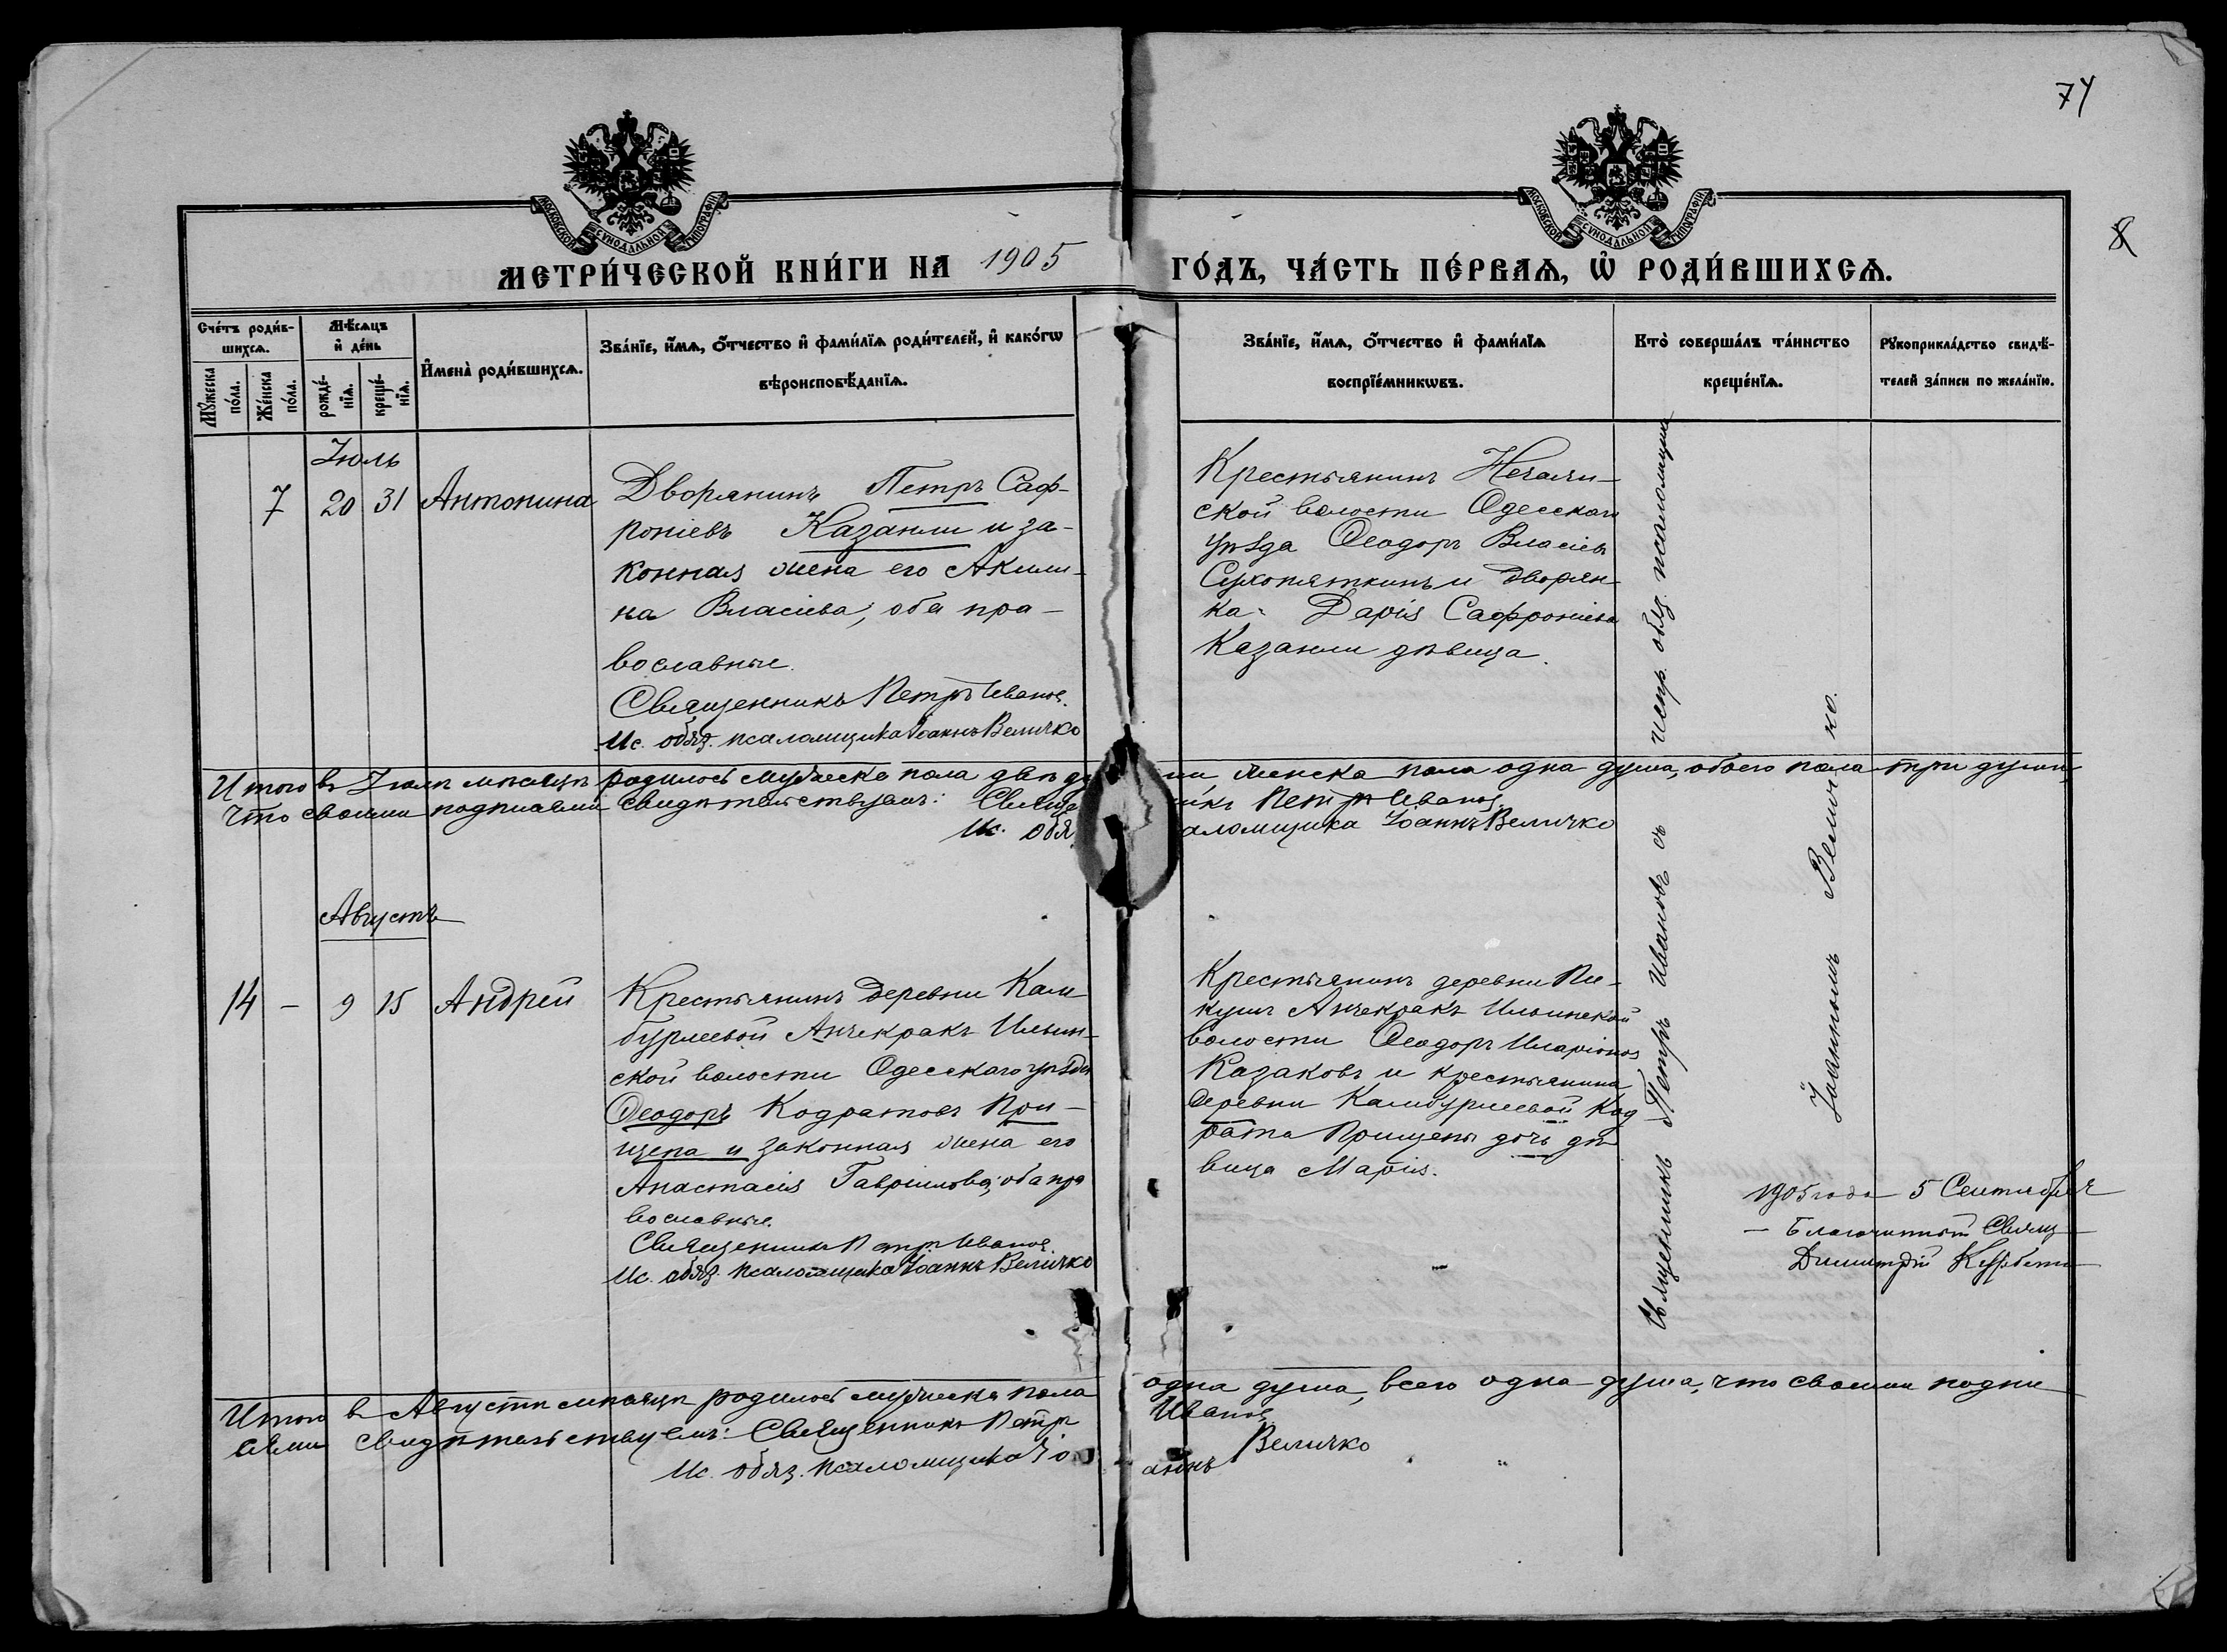 74
8
МОСКОВСКОЙ СѴНОДАЛЬНОЙ ТИПОГРАФІИ
МОСКОВСКОЙ СѴНОДАЛЬНОЙ ТИПОГРАФІИ
МЕТРИ́ЧЕСКОЙ КНИ́ГИ НА 1905 ГО́ДЪ, ЧА́СТЬ ПЕ́РВАѦ, Ѡ҆ РОДИ́ВШИХСѦ.
Сче́тъ роди́в-
шихсѧ.
Мꙋ́жеска
по́ла.
Же́нска
по́ла.
Мѣ́сѧцъ
и҆ де́нь
рожде́-
нїѧ.
креще́-
нїѧ.
И҆мена̀ роди́вшихсѧ.
Зва́нїе, и҆́мѧ, ѻ҆́тчество и҆ фами́лїѧ роди́телей, и҆ како́гѡ
вѣроисповѣ́данїѧ.
Зва́нїе, и҆́мѧ, ѻ҆́тчество и҆ фами́лїѧ
воспрїе́мникѡвъ.
Кто̀ соверша́лъ та́инство
креще́нїѧ.
Рꙋкоприкла́дство свидѣ́-
телей за́писи по жела́нїю.
Іюль
7 20 31 Антонина
Дворянинъ Петръ Саф-
роніевъ Казанли и за-
конная жена его Акили-
на Власіева, оба пра-
вославные.
Священникъ Петръ Иванов.
Ис. обяз. псаломщика Іоаннъ Величко
Крестьянинъ Нечаян-
ской волости Одесскаго
уѣзда Ѳеодоръ Власіев
Сухопяткинъ и дворян-
ка Дарія Сафроніева
Казанли дѣвица.
Итого въ Іюлѣ мѣсяцѣ родилось мужеска пола двѣ души женска пола одна душа, обоего пола три души,
что своими подписями свидѣтельствуемъ: Священникъ Петръ Иванов.
Ис. обяз. псаломщика Іоаннъ Величко
Августъ
14 - 9 15 Андрей
Крестьянинъ деревни Кам-
бурлеевой Анчекракъ Ильин-
ской волости Одесскаго уѣзда
Ѳеодоръ Кодратовъ При-
щепа и законная жена его
Анастасія Гавріилова, оба пра
вославные.
Священникъ Петръ Иванов.
Ис. обяз. псаломщика Іоаннъ Величко
Крестьянинъ деревни
Анчекракъ Ильинской
волости Ѳеодоръ Иларіонов
Казаковъ и крестьянина
деревни Камбурлеевой Код
рата Прищепы дочь дѣ
вица Марія.
Священникъ Петръ Ивановъ съ испр. обяз. псаломщика
Іоанномъ Величко.
1905 года 5 Сентября
Благочинный Свящ
Димитрій
Итого въ Августѣ мѣсяцѣ родилось мужеска пола одна душа, всего одна душа, что своими подпи
сями свидѣтельствуемъ: Священникъ Петръ Иванов.
Ис. обяз. псаломщика Іоаннъ Величко